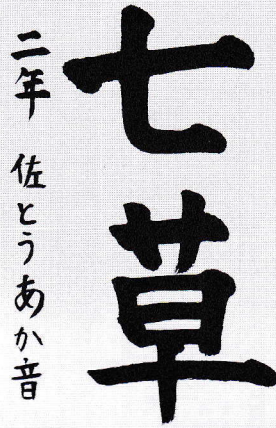 七草
二年 佐とうあか音